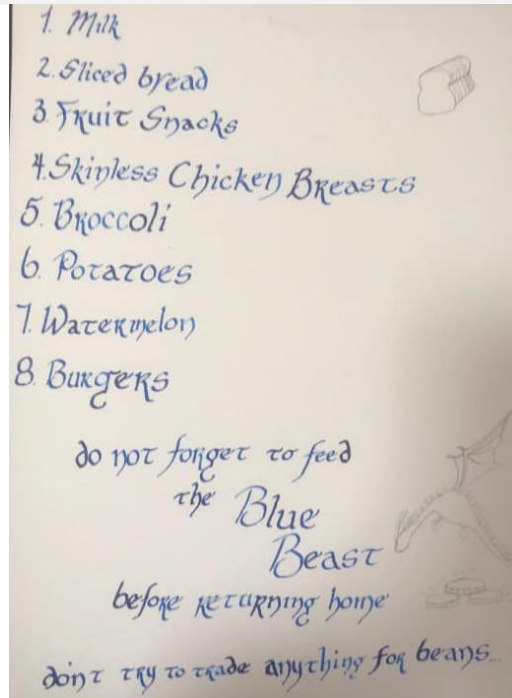 1. Milk
2. Sliced bread
3. Fruit Snacks
4. Skinless Chicken Breasts
5. Broccoli
6. Potatoes
7. Watermelon
8. Burgers
do not forget to feed
the Blue
Beast
before returning home
don't try to trade anything for beans...